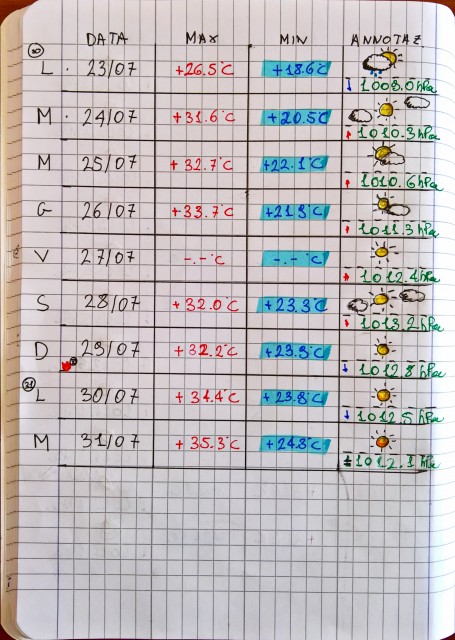 DATA MAX MIN ANNOTAZ
30
L · 23/07 +26.5°C +18.6°C ↓ 1008.0 hPa
M · 24/07 +31.6°C +20.5°C ↑ 1010.3 hPa
M 25/07 +32.7°C +22.1°C ↑ 1010.6 hPa
G 26/07 +33.7°C +21.9°C ↑ 1011.3 hPa
V 27/07 -.-°C -.-°C ↑ 1012.4 hPa
S 28/07 +32.0°C +23.3°C ↑ 1013.2 hPa
D 29/07 +32.2°C +23.9°C ↓ 1012.8 hPa
31
L 30/07 +34.4°C +23.8°C ↓ 1012.5 hPa
M 31/07 +35.3°C +24.8°C = 1012.1 hPa